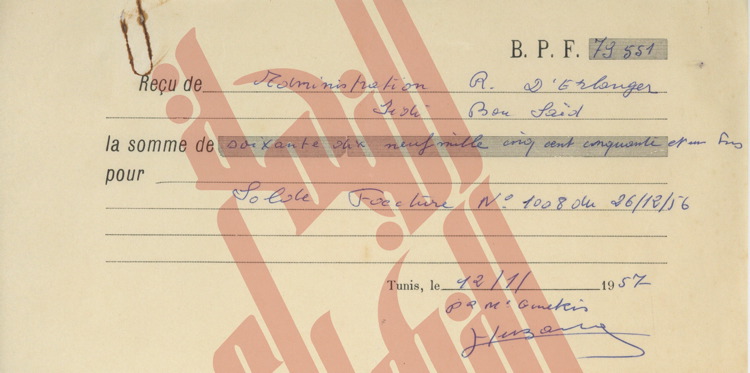 B. P. F. 79 551
Reçu de Administration R. D'Erlanger
Sidi Bou Saïd
la somme de soixante dix neuf mille cinq cent cinquante et un frs
pour
Solde Facture N° 1008 du 26/12/56
Tunis, le 12/1/ 1957